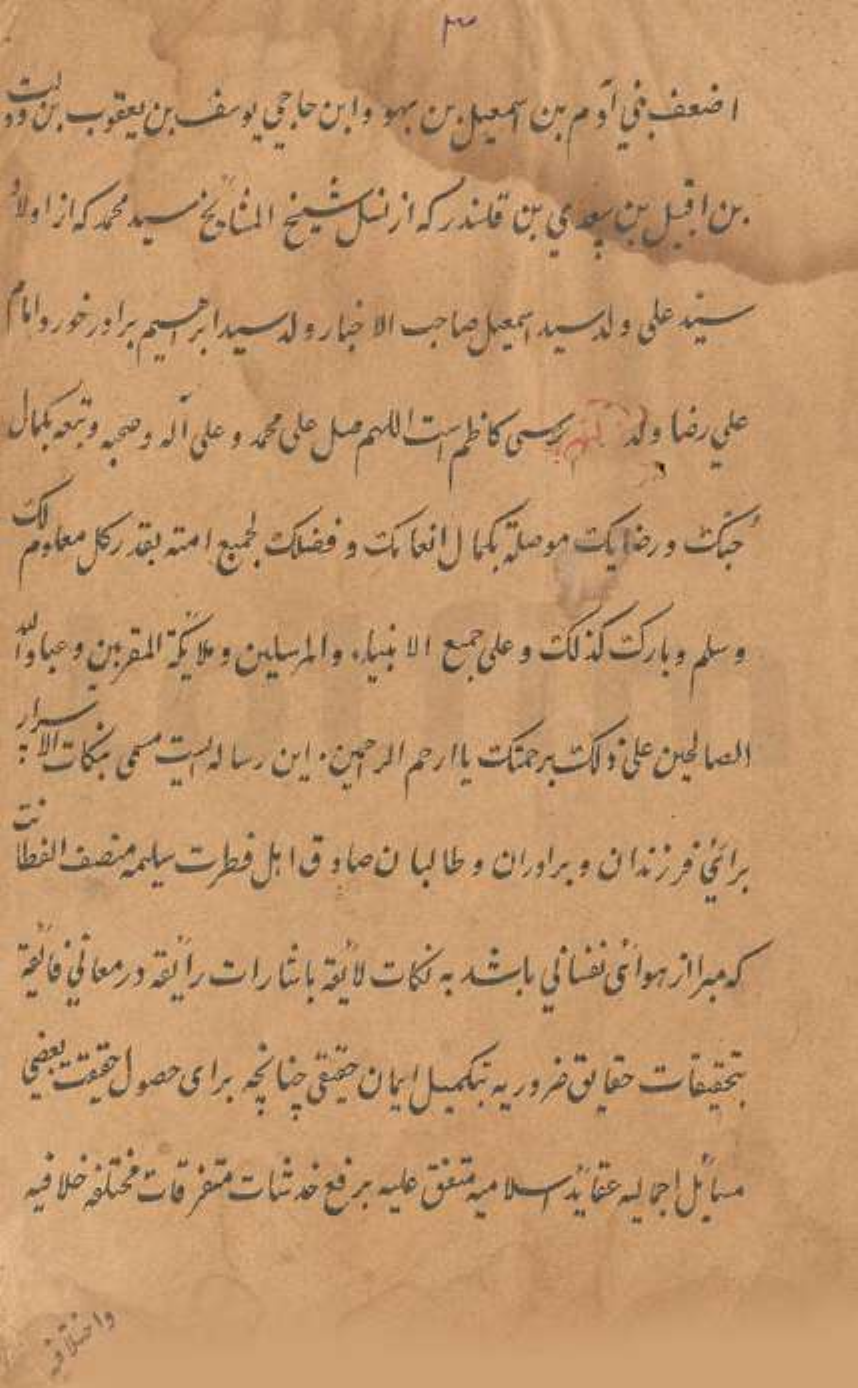 ۳
اضعف بنی آدم بن اسمعیل بن بهو وابن حاجی یوسف بن یعقوب بن دولت
بن اقبل بن سعدی بن قلندر که از نسل شیخ المشایخ سید محمد که از اولاد
سید علی ولد سید اسمعیل صاحب الاخبار ولد سید ابراهیم برادر خورد امام
علی رضا ولد موسی کاظم است اللهم صل علی محمد و علی آله و صحبه و تبعه بکمال
حبک و رضایک موصلة بکمال انعامک و فضلک لجمیع امته بقدر کل معلوم لک
و سلم و بارک کذلک و علی جمیع الانبیاء والمرسلین و ملایکة المقربین و عباد الله
الصالحین علی ذلک برحمتک یا ارحم الرحمین۰ این رساله ایست مسمی بنکات الاسرار
برائی فرزندان و برادران و طالبان صادق اهل فطرت سلیمه منصف الفطانت
که مبرا از هوائی نفسانی باشد به نکات لائقه باشارات رائقه در معانی فائقة
بتحقیقات حقایق ضروریه بتکمیل ایمان حقیقی چنانچه برای حصول حقیقت بعضی
مسائل اجمالیه عقائد اسلامیه متفق علیه برفع خدشات متفرقات مختلفه خلافیه
واختلافیه